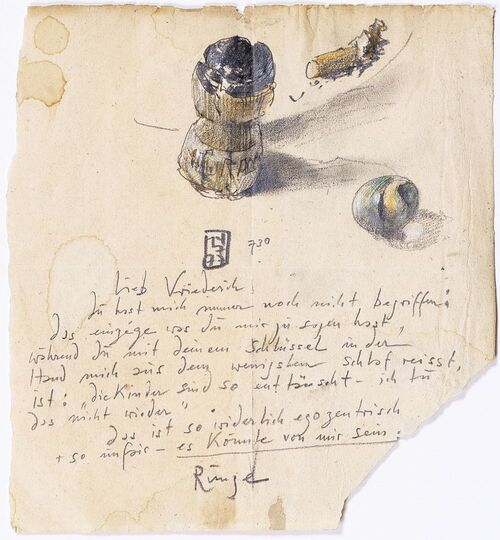 730
Lieb Vriederich
Du hast mich immer noch nicht begriffen:
das einzege was du mir zu sagen hast,
während du mit deinem Schlüssel in der
Hand mich aus dem wenigsten Schlaf reisst,
ist: „die Kinder sind so enttäuscht – ich tu
das nicht wieder"
das ist so widerlich egozentrisch
+ so unfair – es könnte von mir sein.
Runge